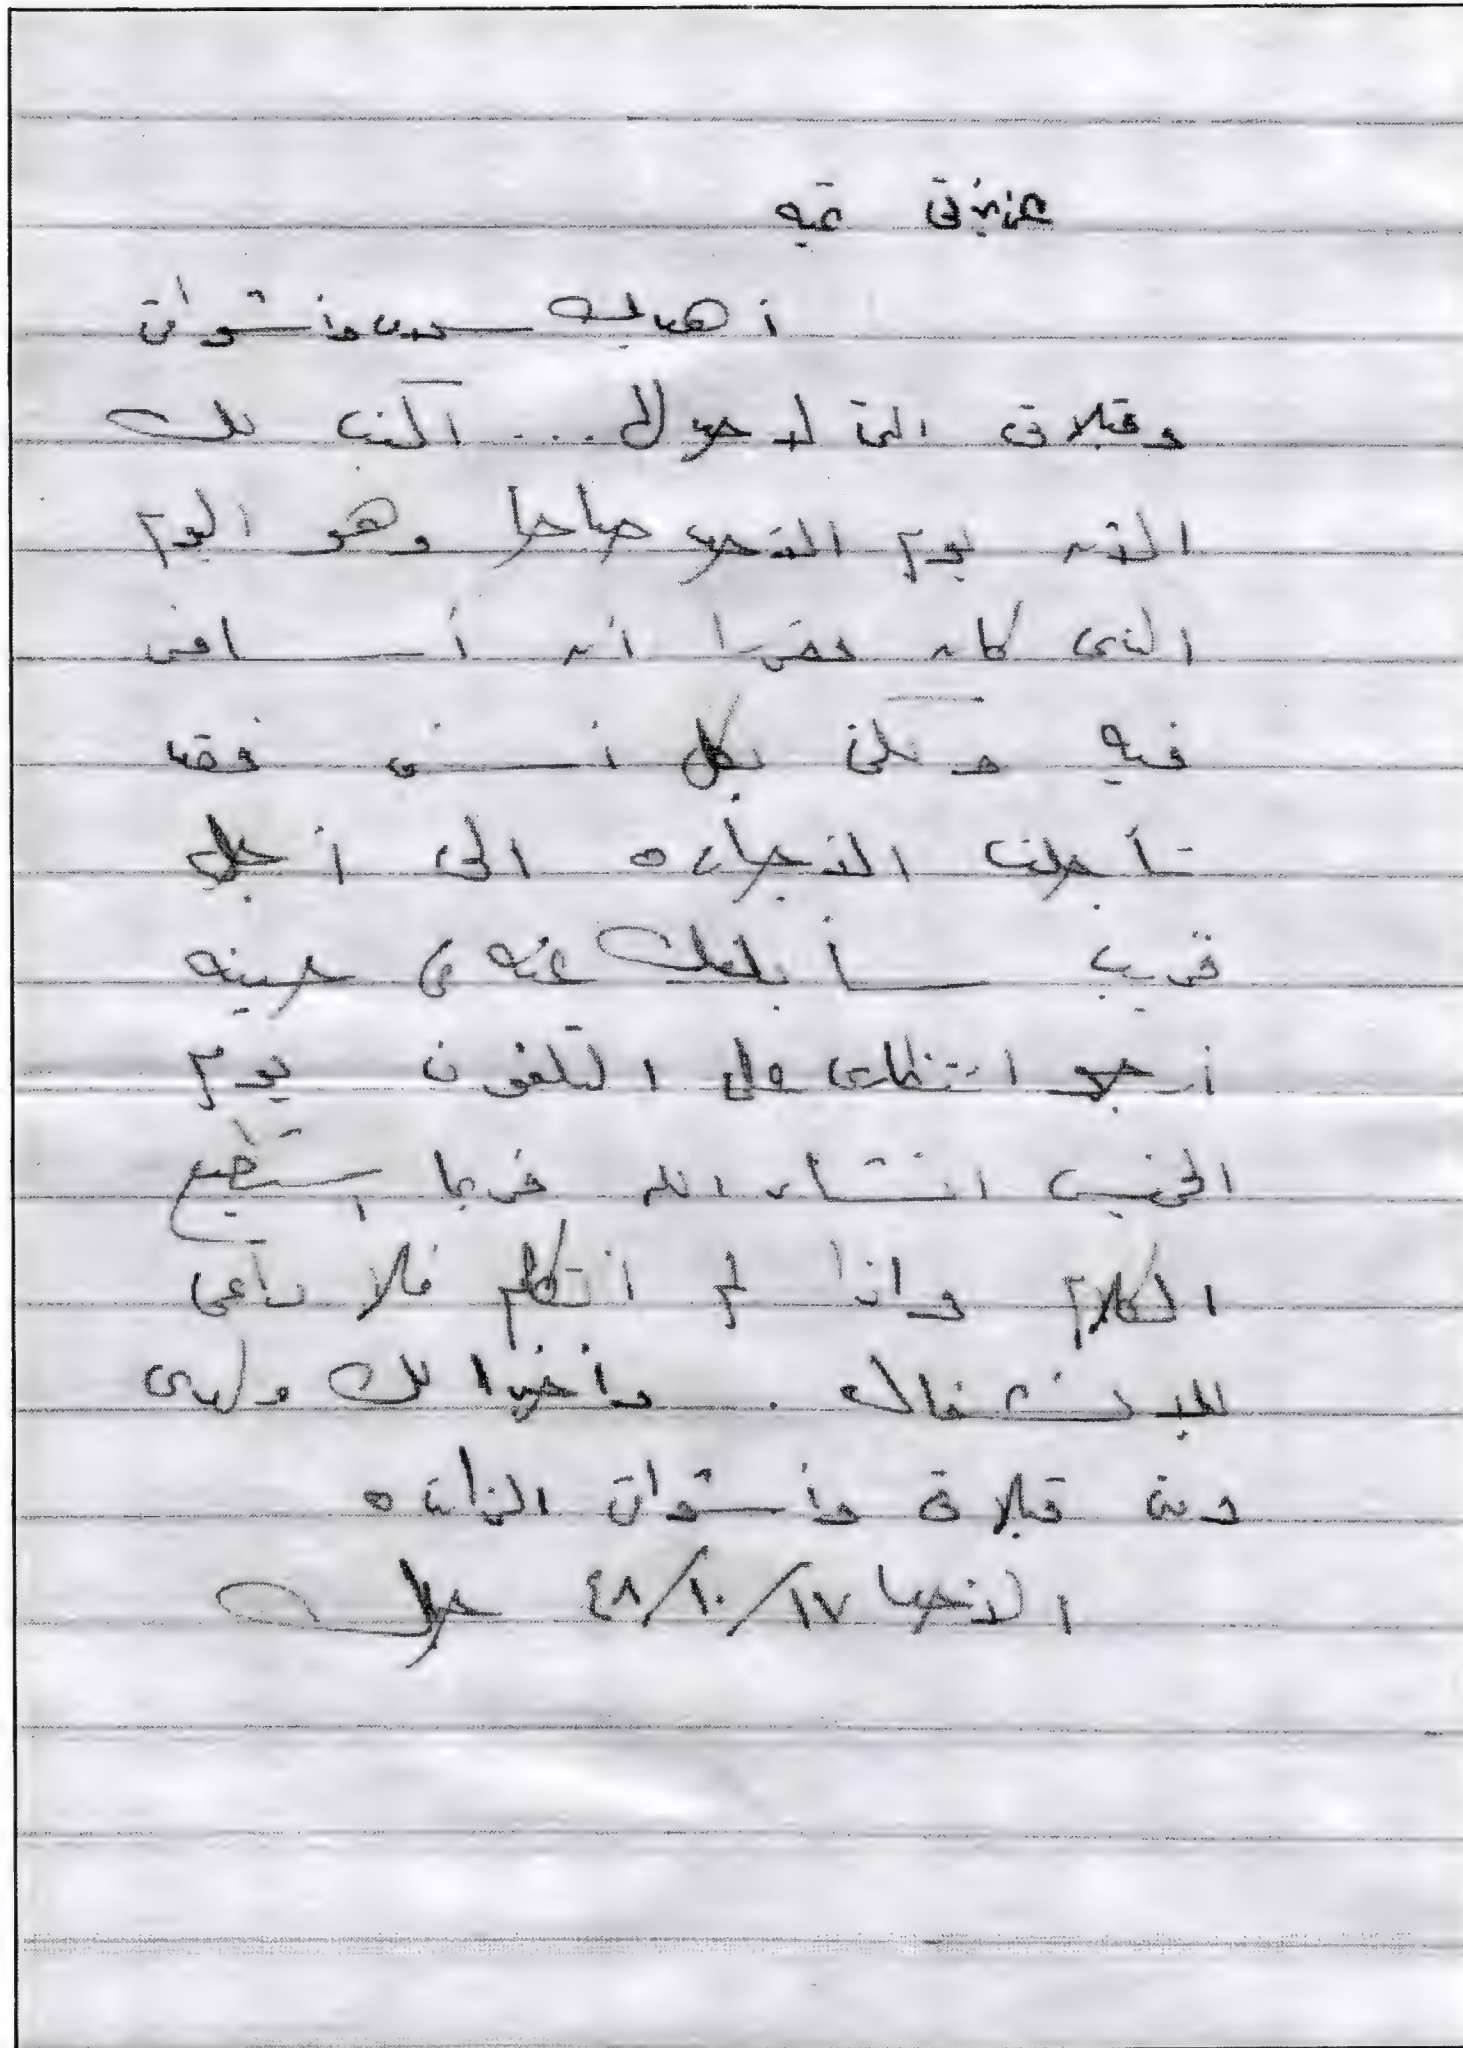 عزيزتى تحيه
أهديك سلامى وأشواقى
وقبلاتى التى لا حد لها ... اكتب لك
الآن يوم الأحد صباحا وهو اليوم
الذى كان مقررا أن أسافر
فيه ولكن بكل أسف فقد
تأجلت الأجازه الى أجل
قريب سأبلغك عنه فى حينه
أرجو انتظارى على التلفون يوم
الخميس انشاء الله فربما إستطيع
الكلام واذا لم اتكلم فلا داعى
للإنشغال . وأخيرا لك ولهدى
منى قبلاتى وأشواقى الزائده
الأحد ١٧/١٠/٤٨ جمال